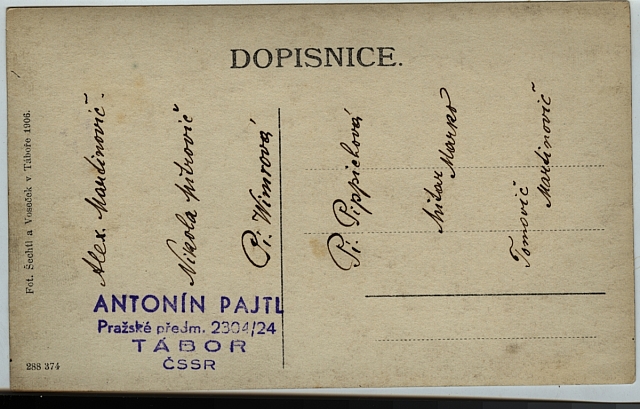 DOPISNICE.
Fot. Šechtl a Voseček v Táboře 1906.
Alex. Martinovič.
Nikola Mitrovič
Pí. Wimrová
Pí. Pippichová
Mitar Marko
Tomovič
Martinovič
ANTONÍN PAJTL
Pražské předm. 2304/24
TÁBOR
ČSSR
288 374